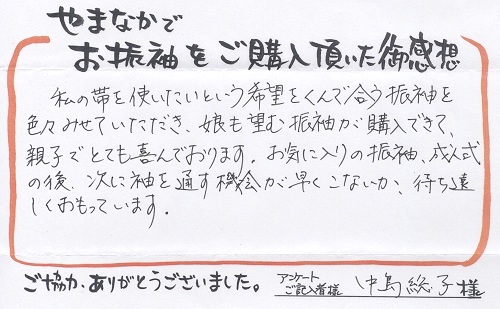 やまなかで
お振袖をご購入頂いた御感想
私の帯を使いたいという希望をくんで合う振袖を
色々みせていただき、娘も望む振袖が購入できて、
親子でとても喜んでおります。お気に入りの振袖、成人式
の後、次に袖を通す機会が早くこないか、待ち遠
しくおもっています。
ご協力、ありがとうございました。
アンケート
ご記入者様 中島総子様